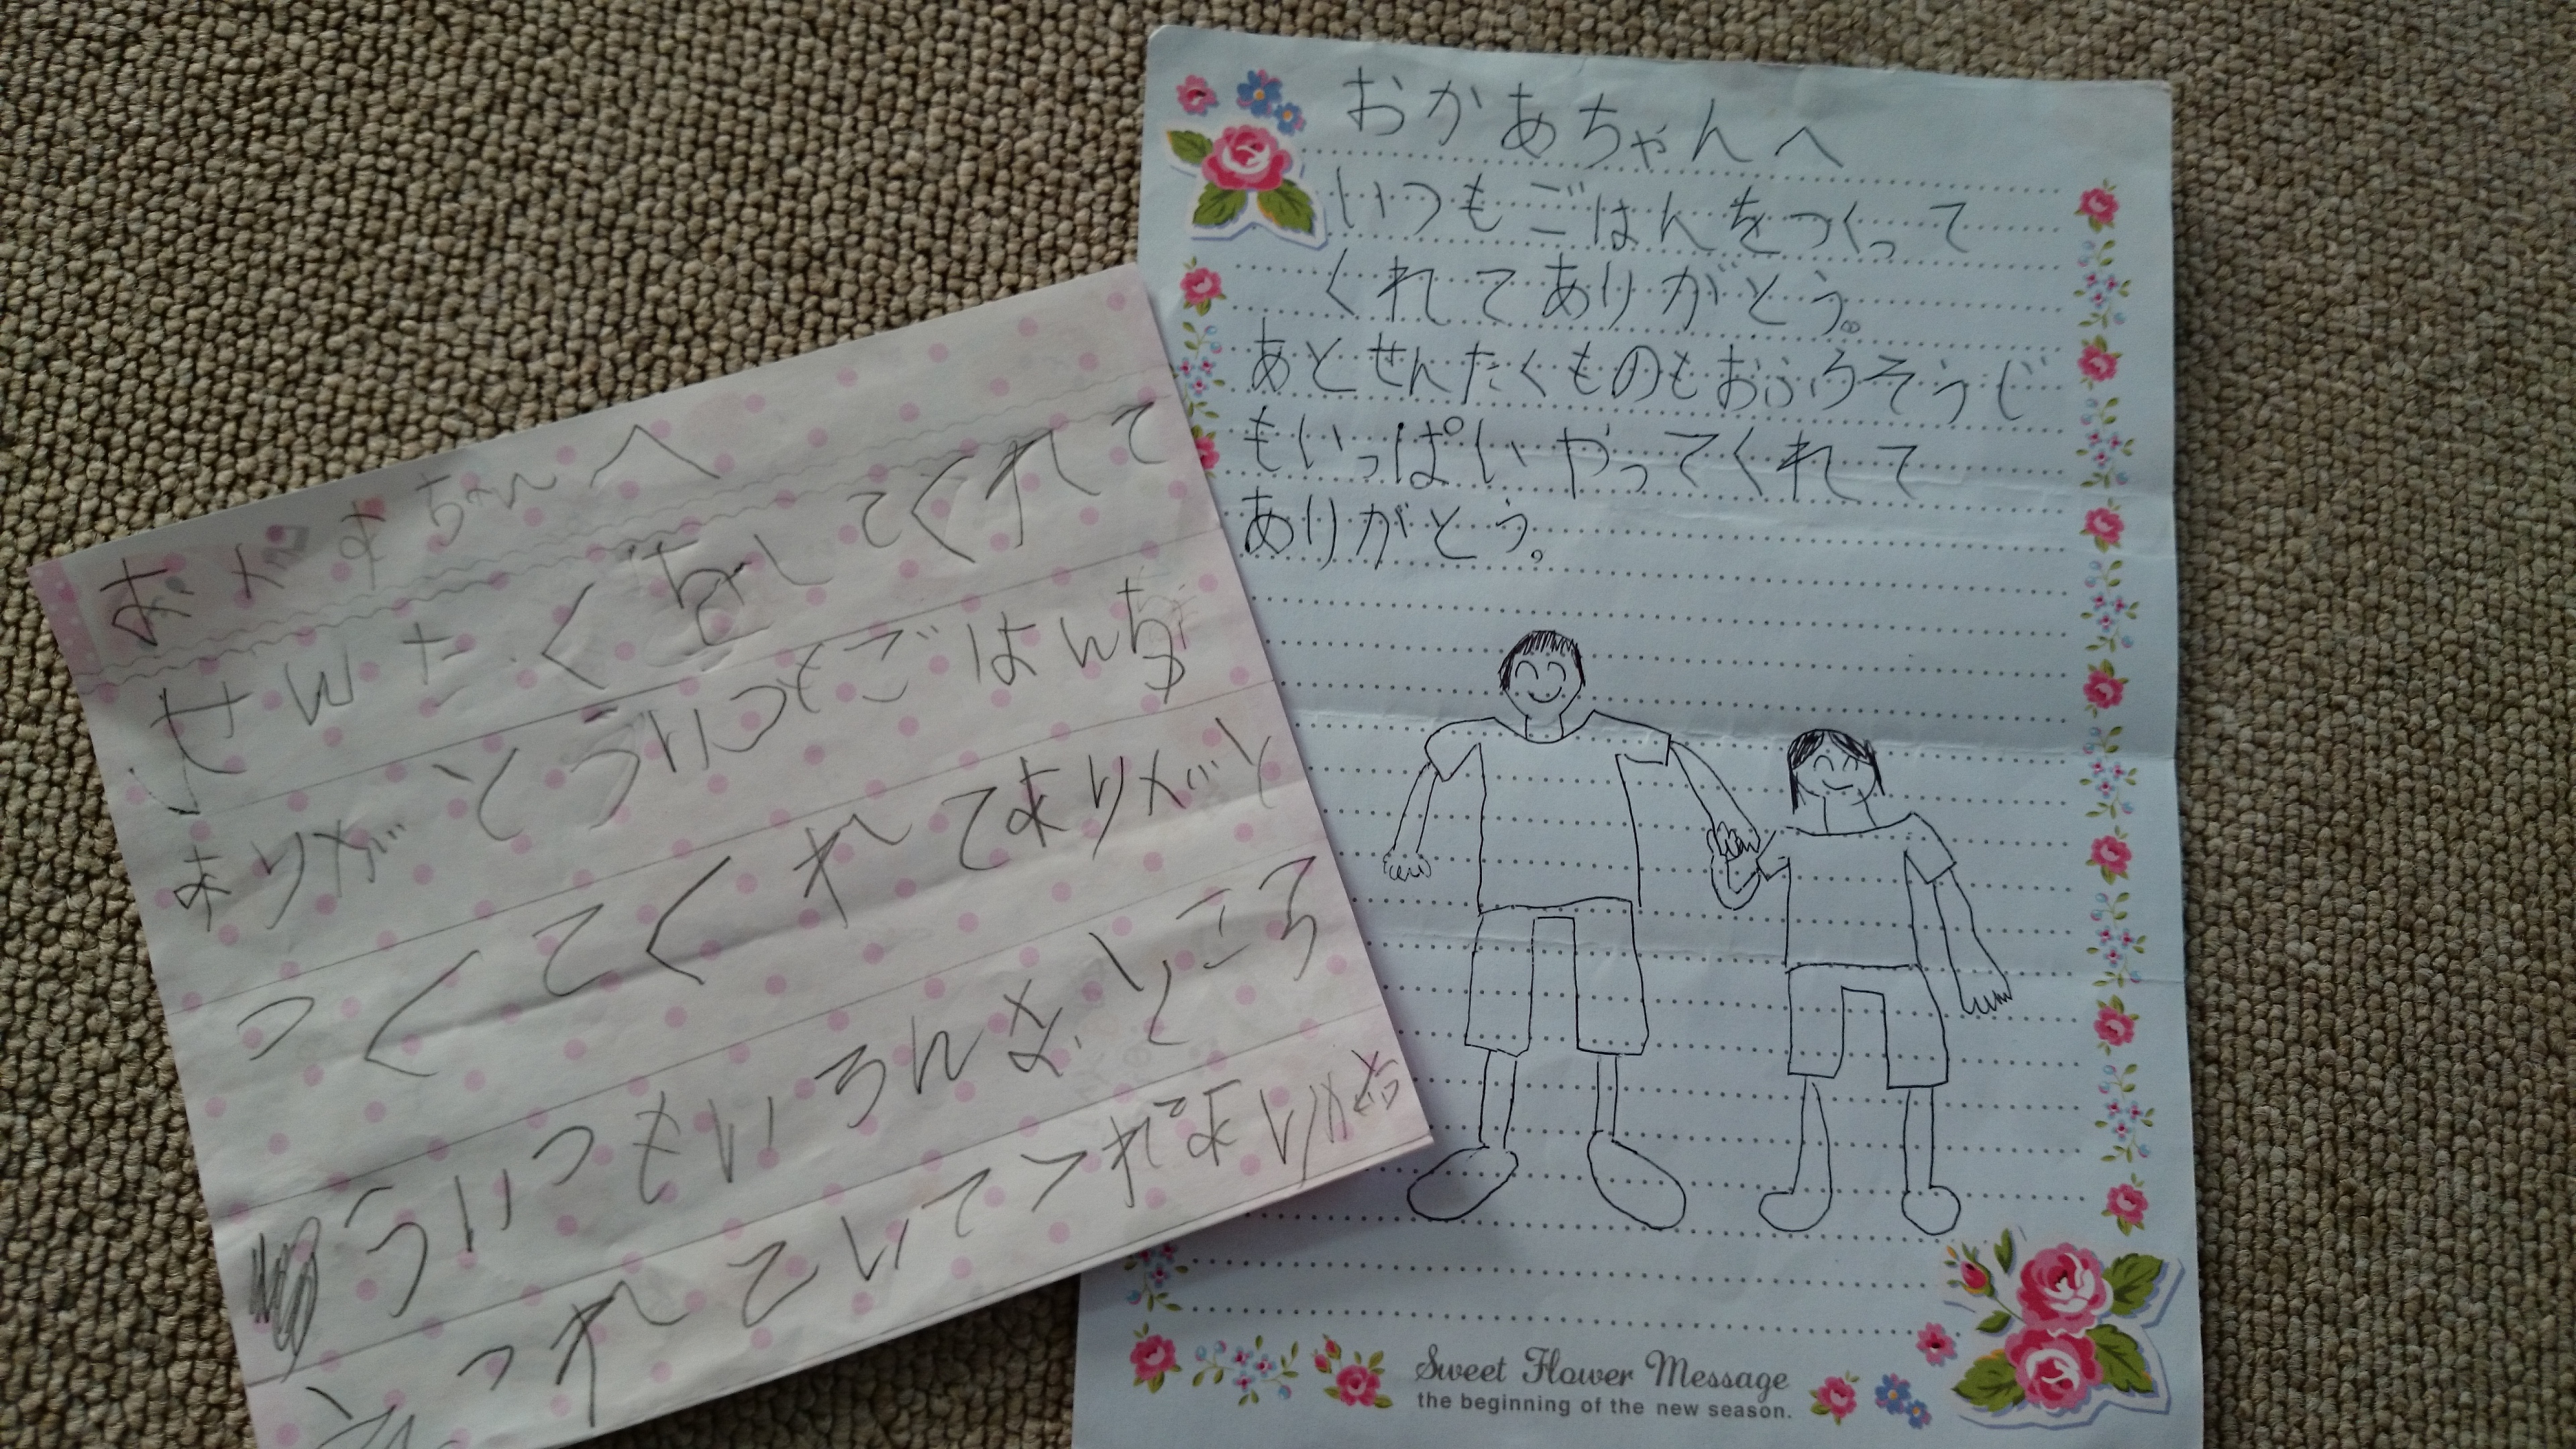 おかあちゃんへ
せんたくをしてくれて
ありがとういつもごはんを
つくてくれてありがと
ういつもいろんなところ
つれていてくれてありがとう
おかあちゃんへ
いつもごはんをつくって
くれてありがとう。
あとせんたくものもおふろそうじ
もいっぱいやってくれて
ありがとう。
Sweet Flower Message
the beginning of the new season.